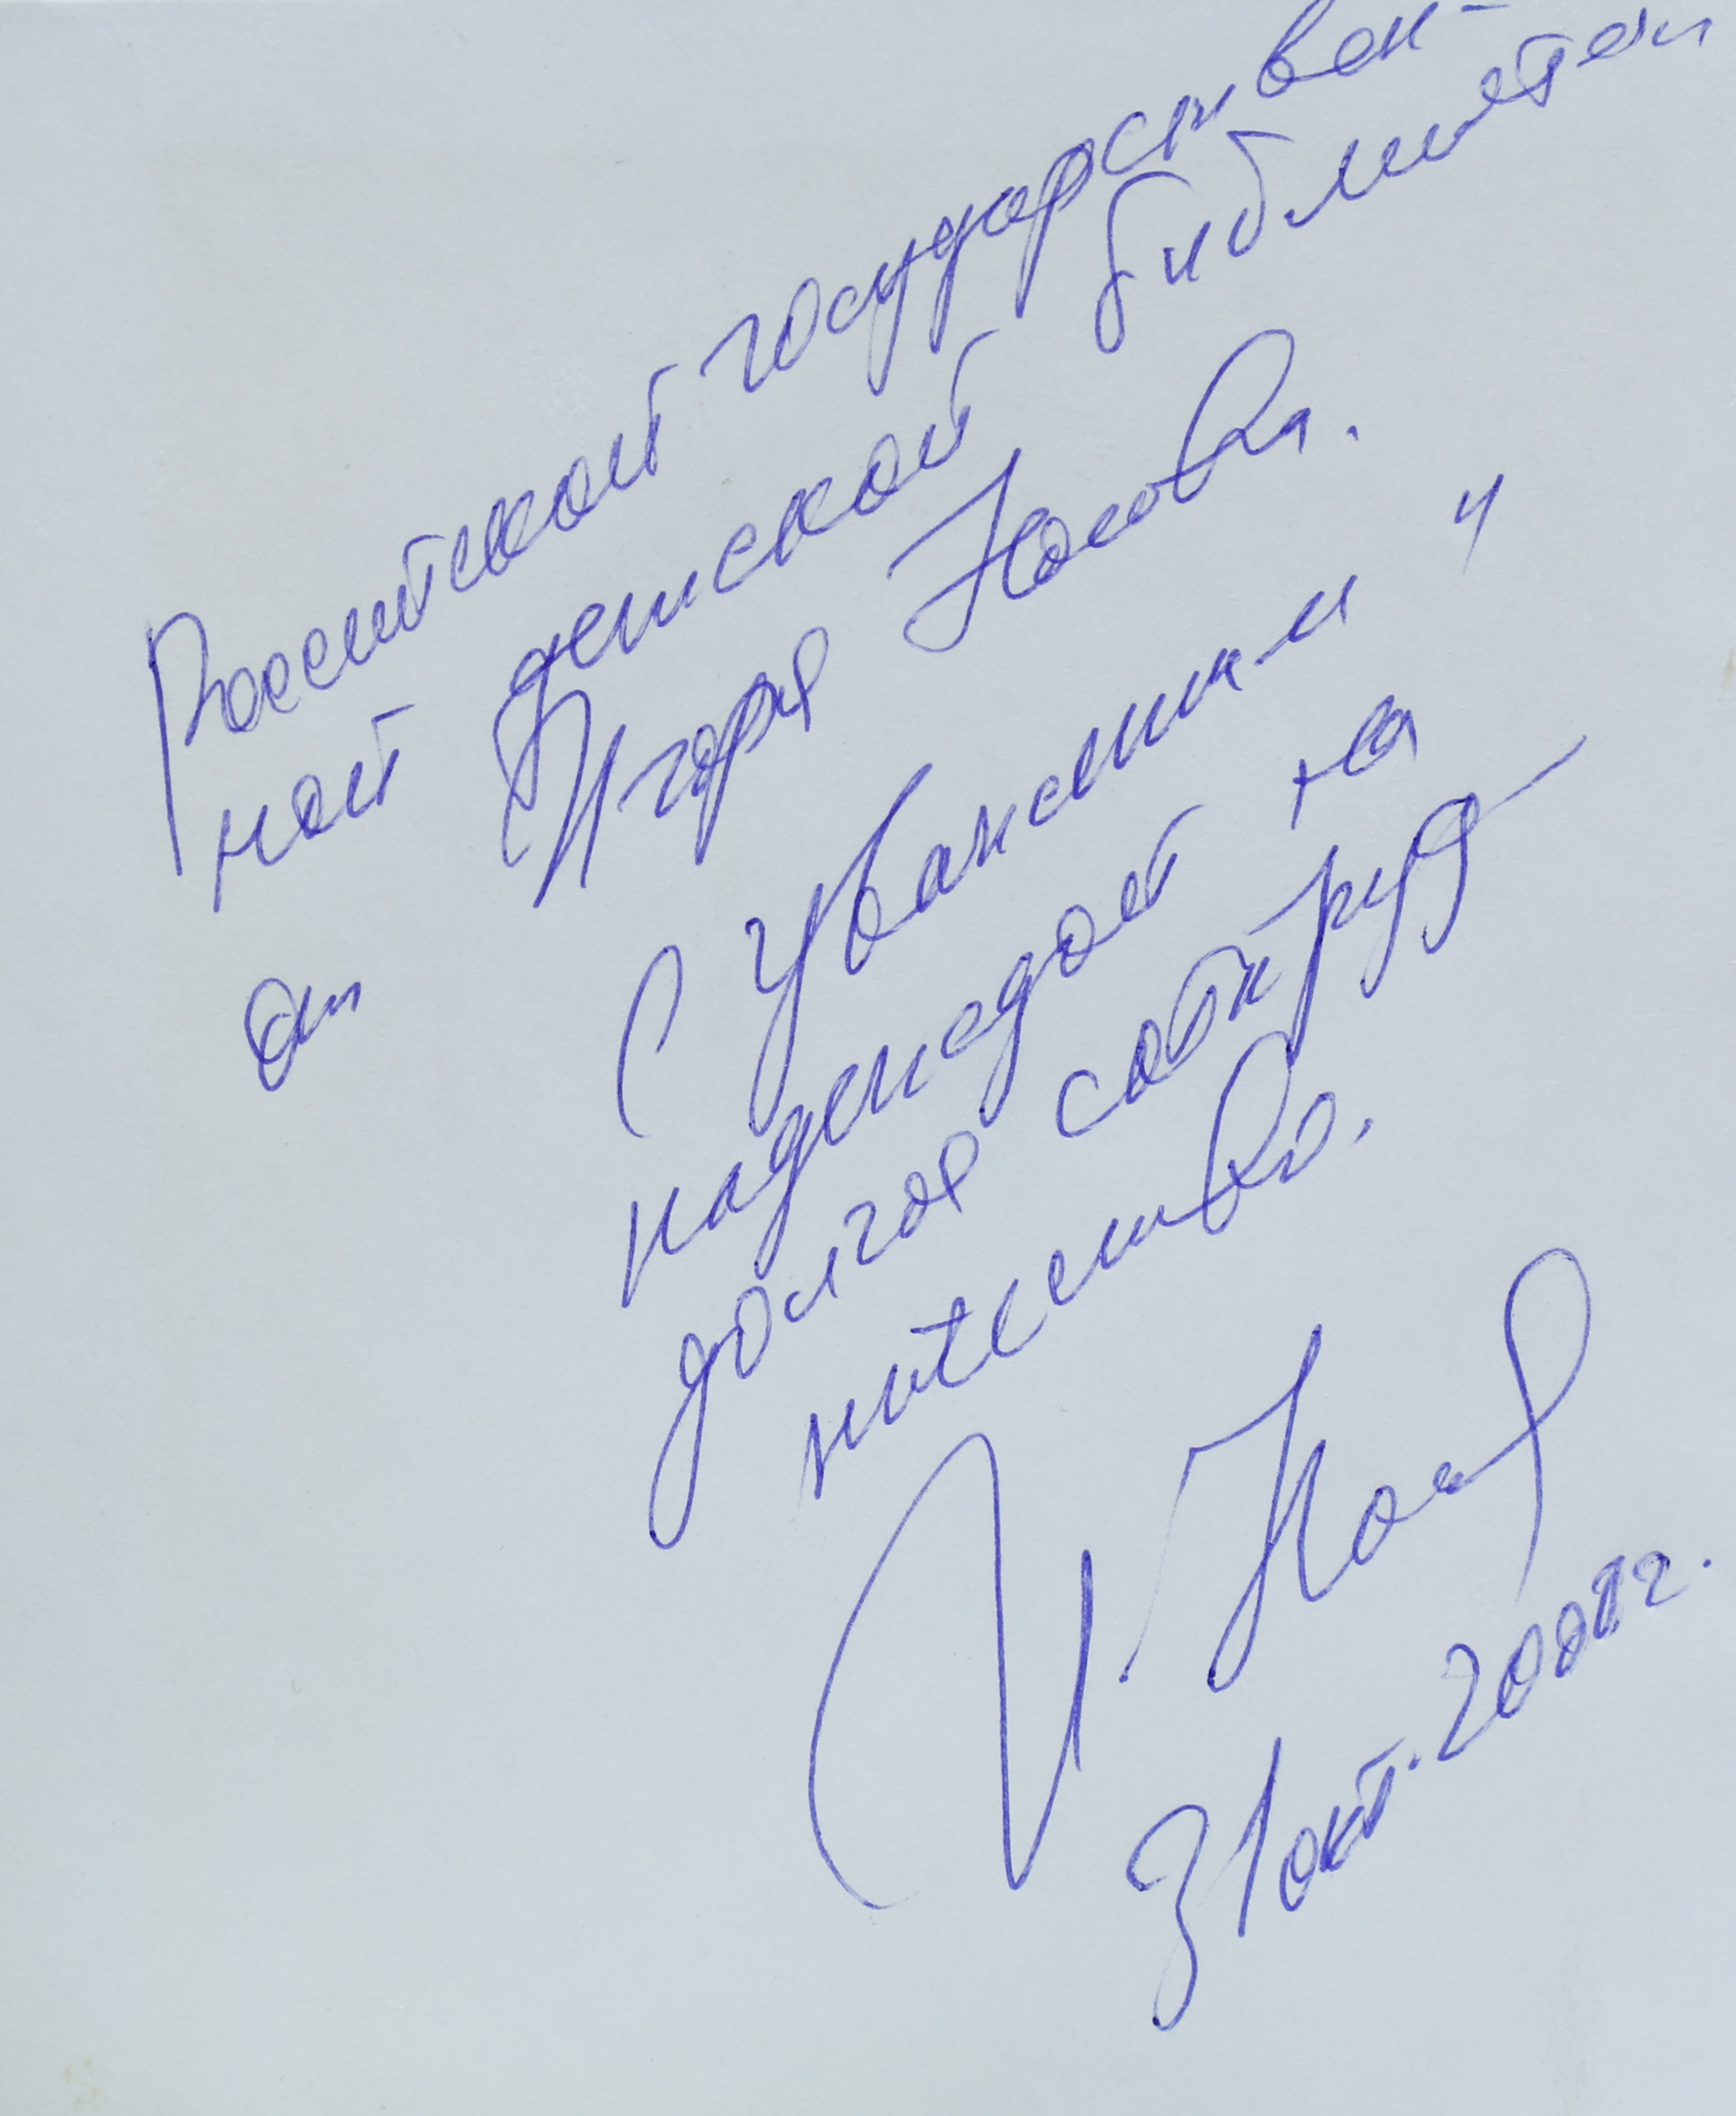 Российской государствен-
ной детской библиотеки
от Игоря Носова.
С уважением и
надеждой на
долгое сотруд
ничество.
И. Носов
31 окт. 2001 г.